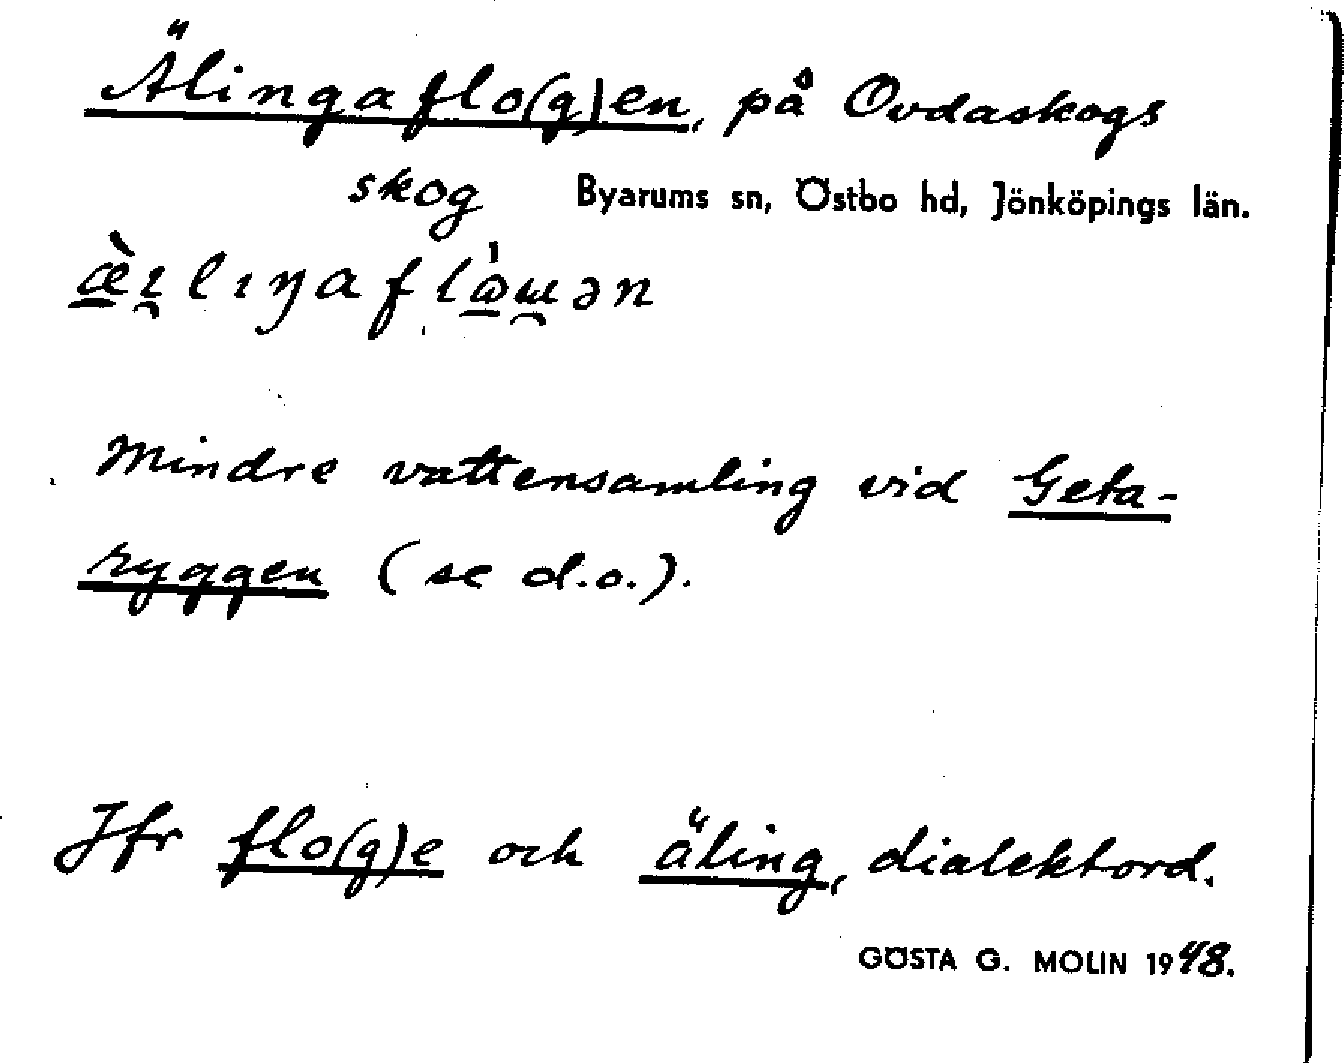 Älingaflo(g)en, på Ovdaskogs
skog Byarums sn, Östbo hd, Jönköpings län.
Mindre vattensamling vid Geta-
ryggen (se d.o.).
Jfr flo(g)e och äling, dialektord.
GÖSTA G. MOLIN 1948.